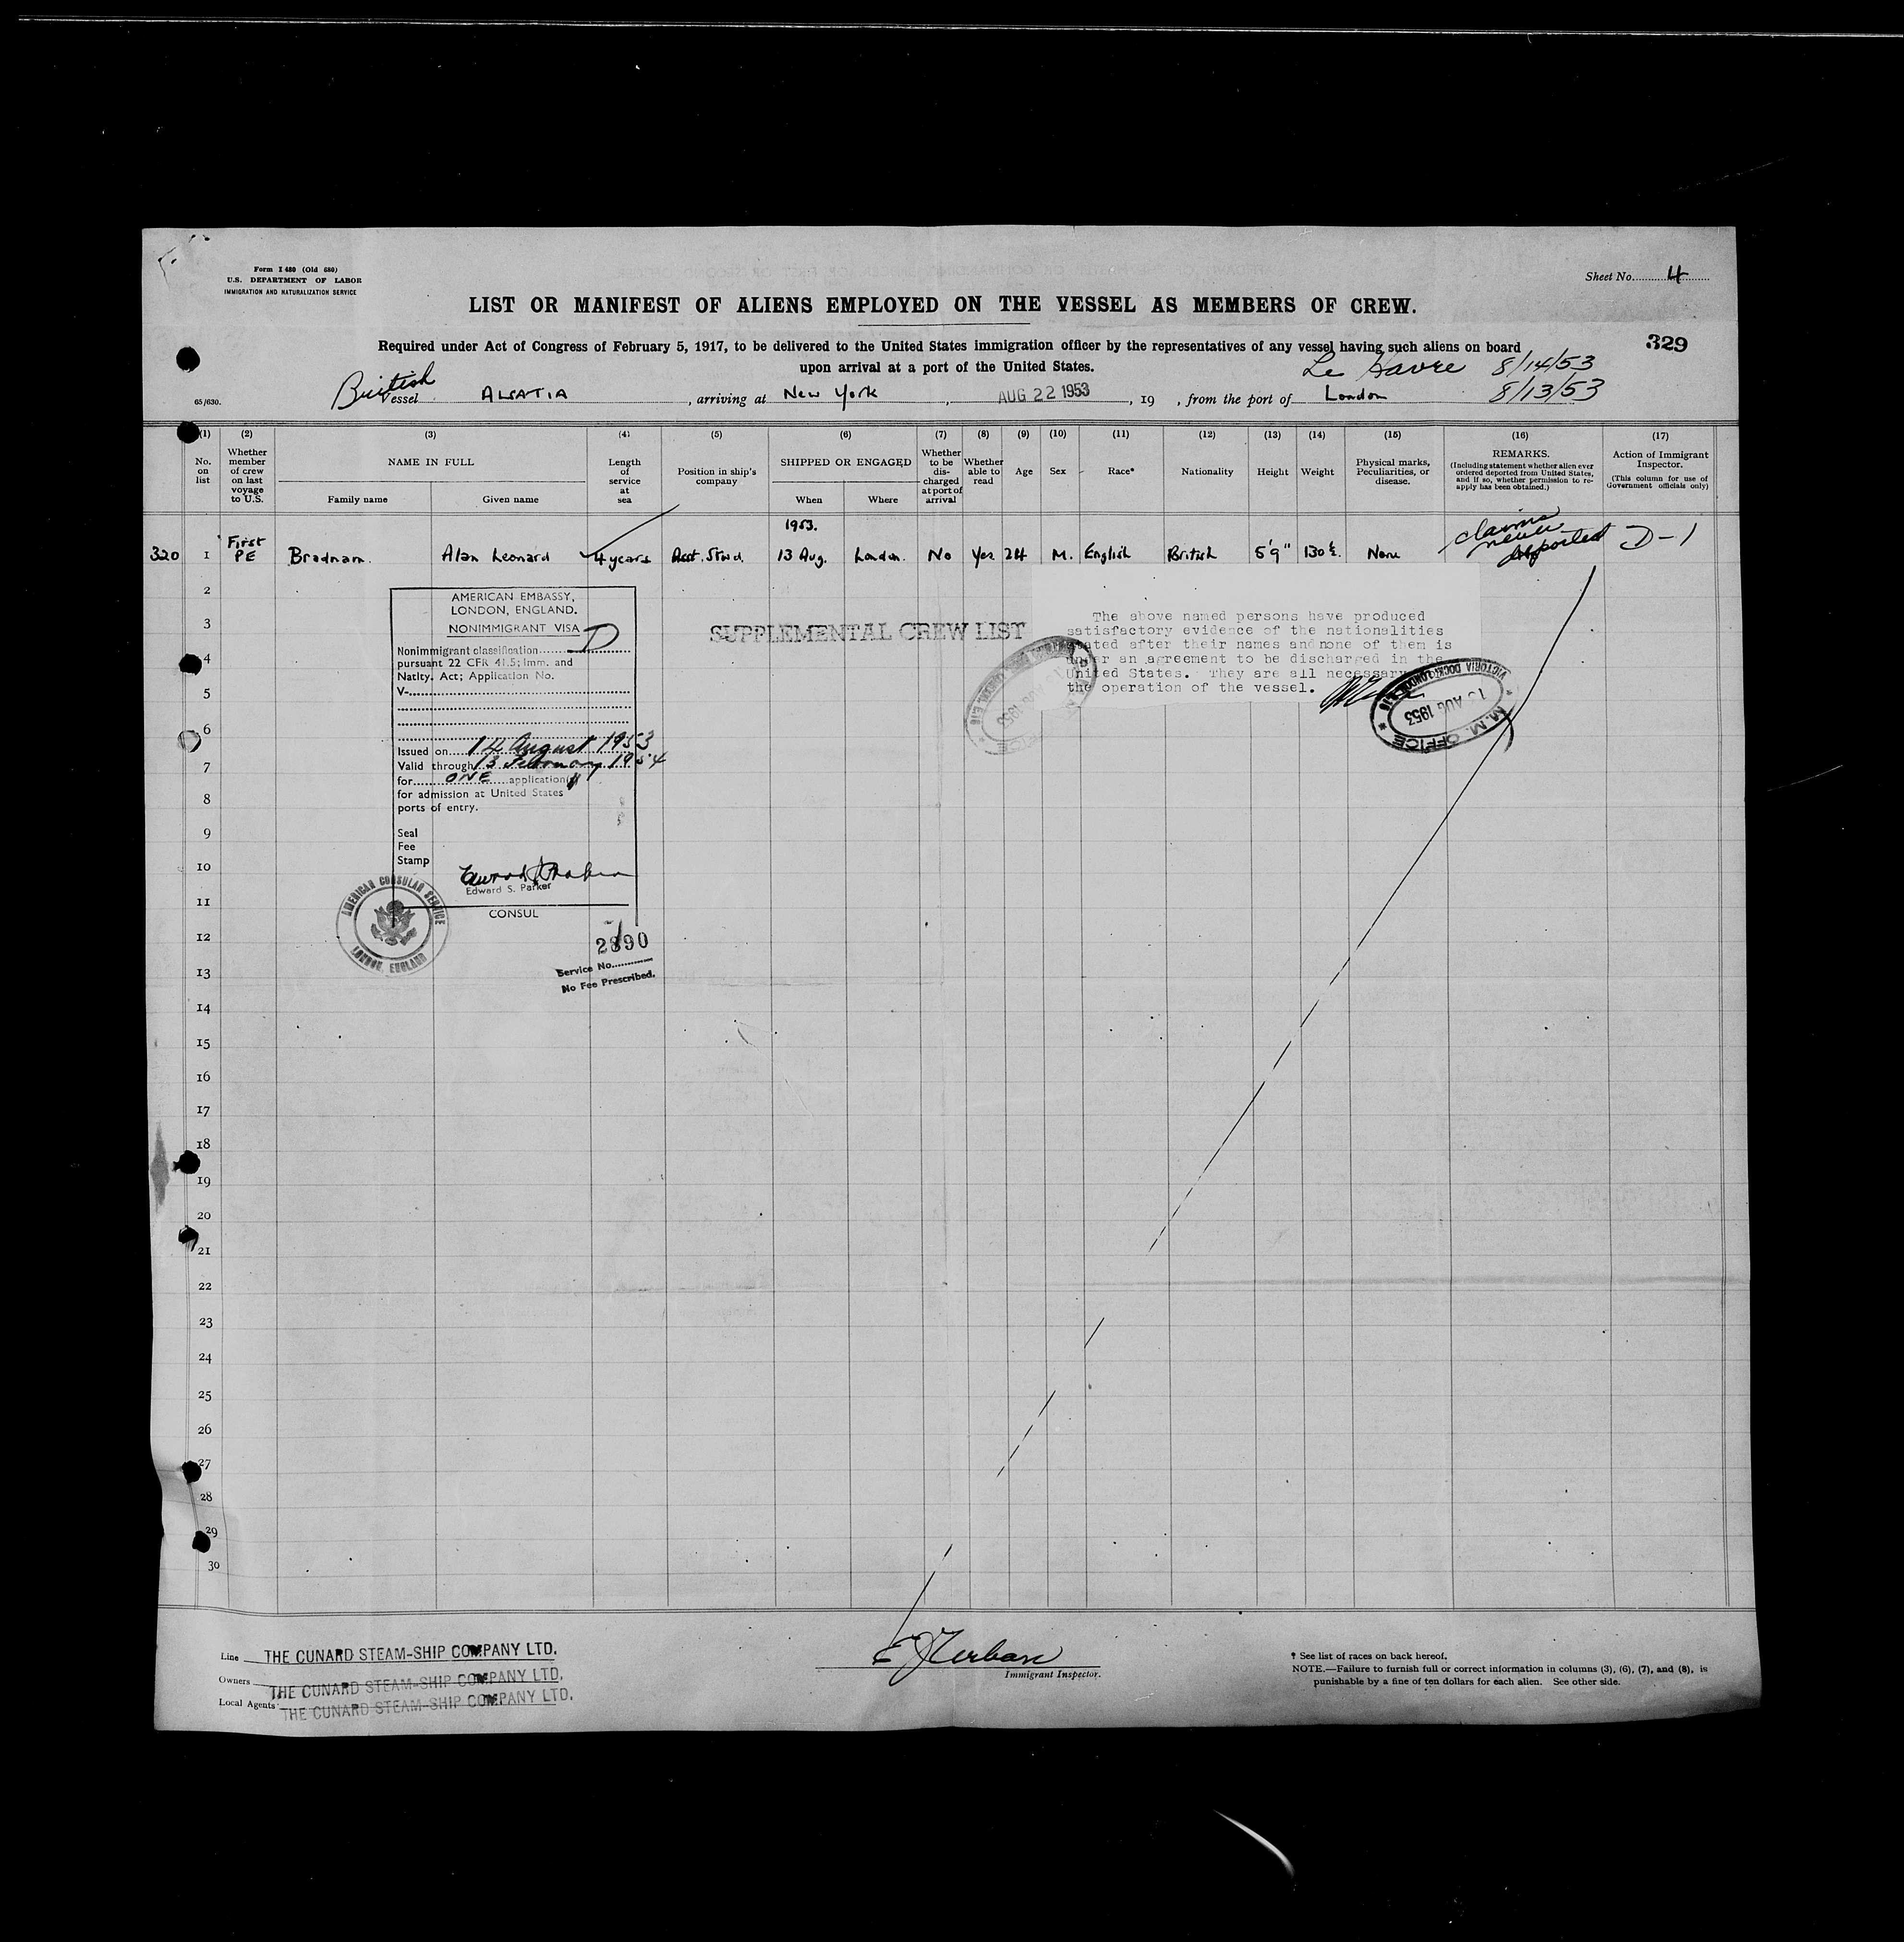 Form I 480 (Old 680)
U.S. DEPARTMENT OF LABOR
IMMIGRATION AND NATURALIZATION SERVICE
Sheet No. 4
LIST OR MANIFEST OF ALIENS EMPLOYED ON THE VESSEL AS MEMBERS OF CREW.
329
Required under Act of Congress of February 5, 1917, to be delivered to the United States immigration officer by the representatives of any vessel having such aliens on board
upon arrival at a port of the United States.
Le Havre 8/14/53
65/630.
British
Vessel ALSATIA, arriving at New York, AUG 22 1953, 19 , from the port of London 8/13/53
(1) (2) (3) (4) (5) (6) (7) (8) (9) (10) (11) (12) (13) (14) (15) (16) (17)
No. on list
Whether member of crew on last voyage to U.S.
NAME IN FULL
Family name
Given name
Length of service at sea
Position in ship's company
SHIPPED OR ENGAGED
When
Where
Whether to be discharged at port of arrival
Whether able to read
Age
Sex
Race*
Nationality
Height
Weight
Physical marks, Peculiarities, or disease.
REMARKS.
(Including statement whether alien ever ordered deported from United States, and if so, whether permission to re-apply has been obtained.)
Action of Immigrant Inspector.
(This column for use of Government officials only)
1953.
320 1 First PE Bradnam. Alan Leonard 4 years Asst. Stwd. 13 Aug. London. No Yes 24 M. English British 5'9" 130 ½. None claims never deported D-1
2
3
4
5
6
7
8
9
10
11
12
13
14
15
16
17
18
19
20
21
22
23
24
25
26
27
28
29
30
AMERICAN EMBASSY,
LONDON, ENGLAND.
NONIMMIGRANT VISA
Nonimmigrant classification D
pursuant 22 CFR 41.5; Imm. and
Natlty. Act; Application No.
V-
Issued on 14 August 1953
Valid through 13 February 1954
for ONE application
for admission at United States
ports of entry.
Seal
Fee
Stamp
Edward S. Parker
CONSUL
AMERICAN CONSULAR SERVICE
LONDON, ENGLAND
2890
Service No.
No Fee Prescribed.
SUPPLEMENTAL CREW LIST
The above named persons have produced
satisfactory evidence of the nationalities
stated after their names and none of them is
under an agreement to be discharged in the
United States. They are all necessary
the operation of the vessel.
M.M. OFFICE
13 AUG 1953
VICTORIA DOCK, LONDON, E.16
Line THE CUNARD STEAM-SHIP COMPANY LTD.
Owners THE CUNARD STEAM-SHIP COMPANY LTD.
Local Agents THE CUNARD STEAM-SHIP COMPANY LTD.
Immigrant Inspector.
* See list of races on back hereof.
NOTE.—Failure to furnish full or correct information in columns (3), (6), (7), and (8), is
punishable by a fine of ten dollars for each alien. See other side.